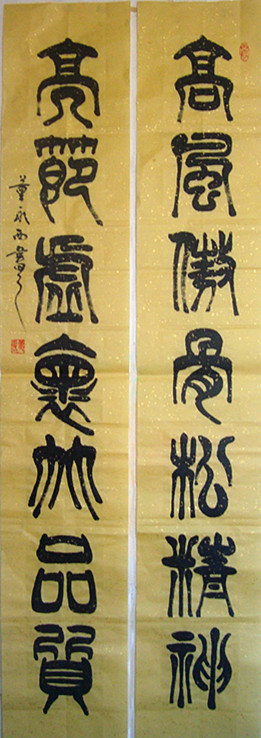 高風傲骨松精神
亮節虛懷竹品質